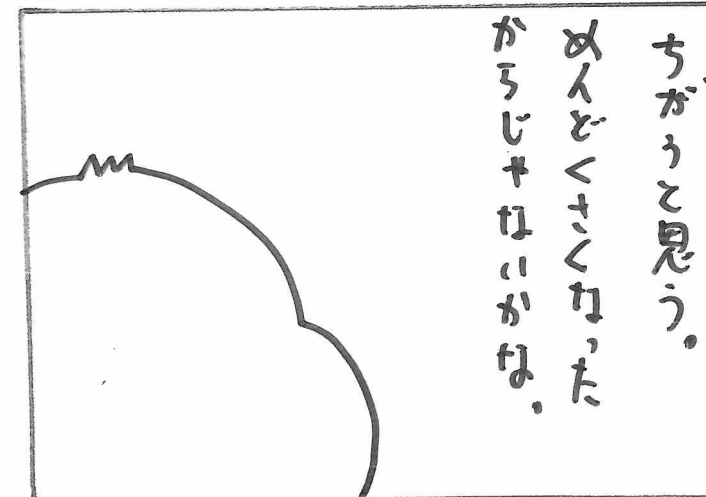 ちがうと思う。
めんどくさくなった
からじゃないかな。